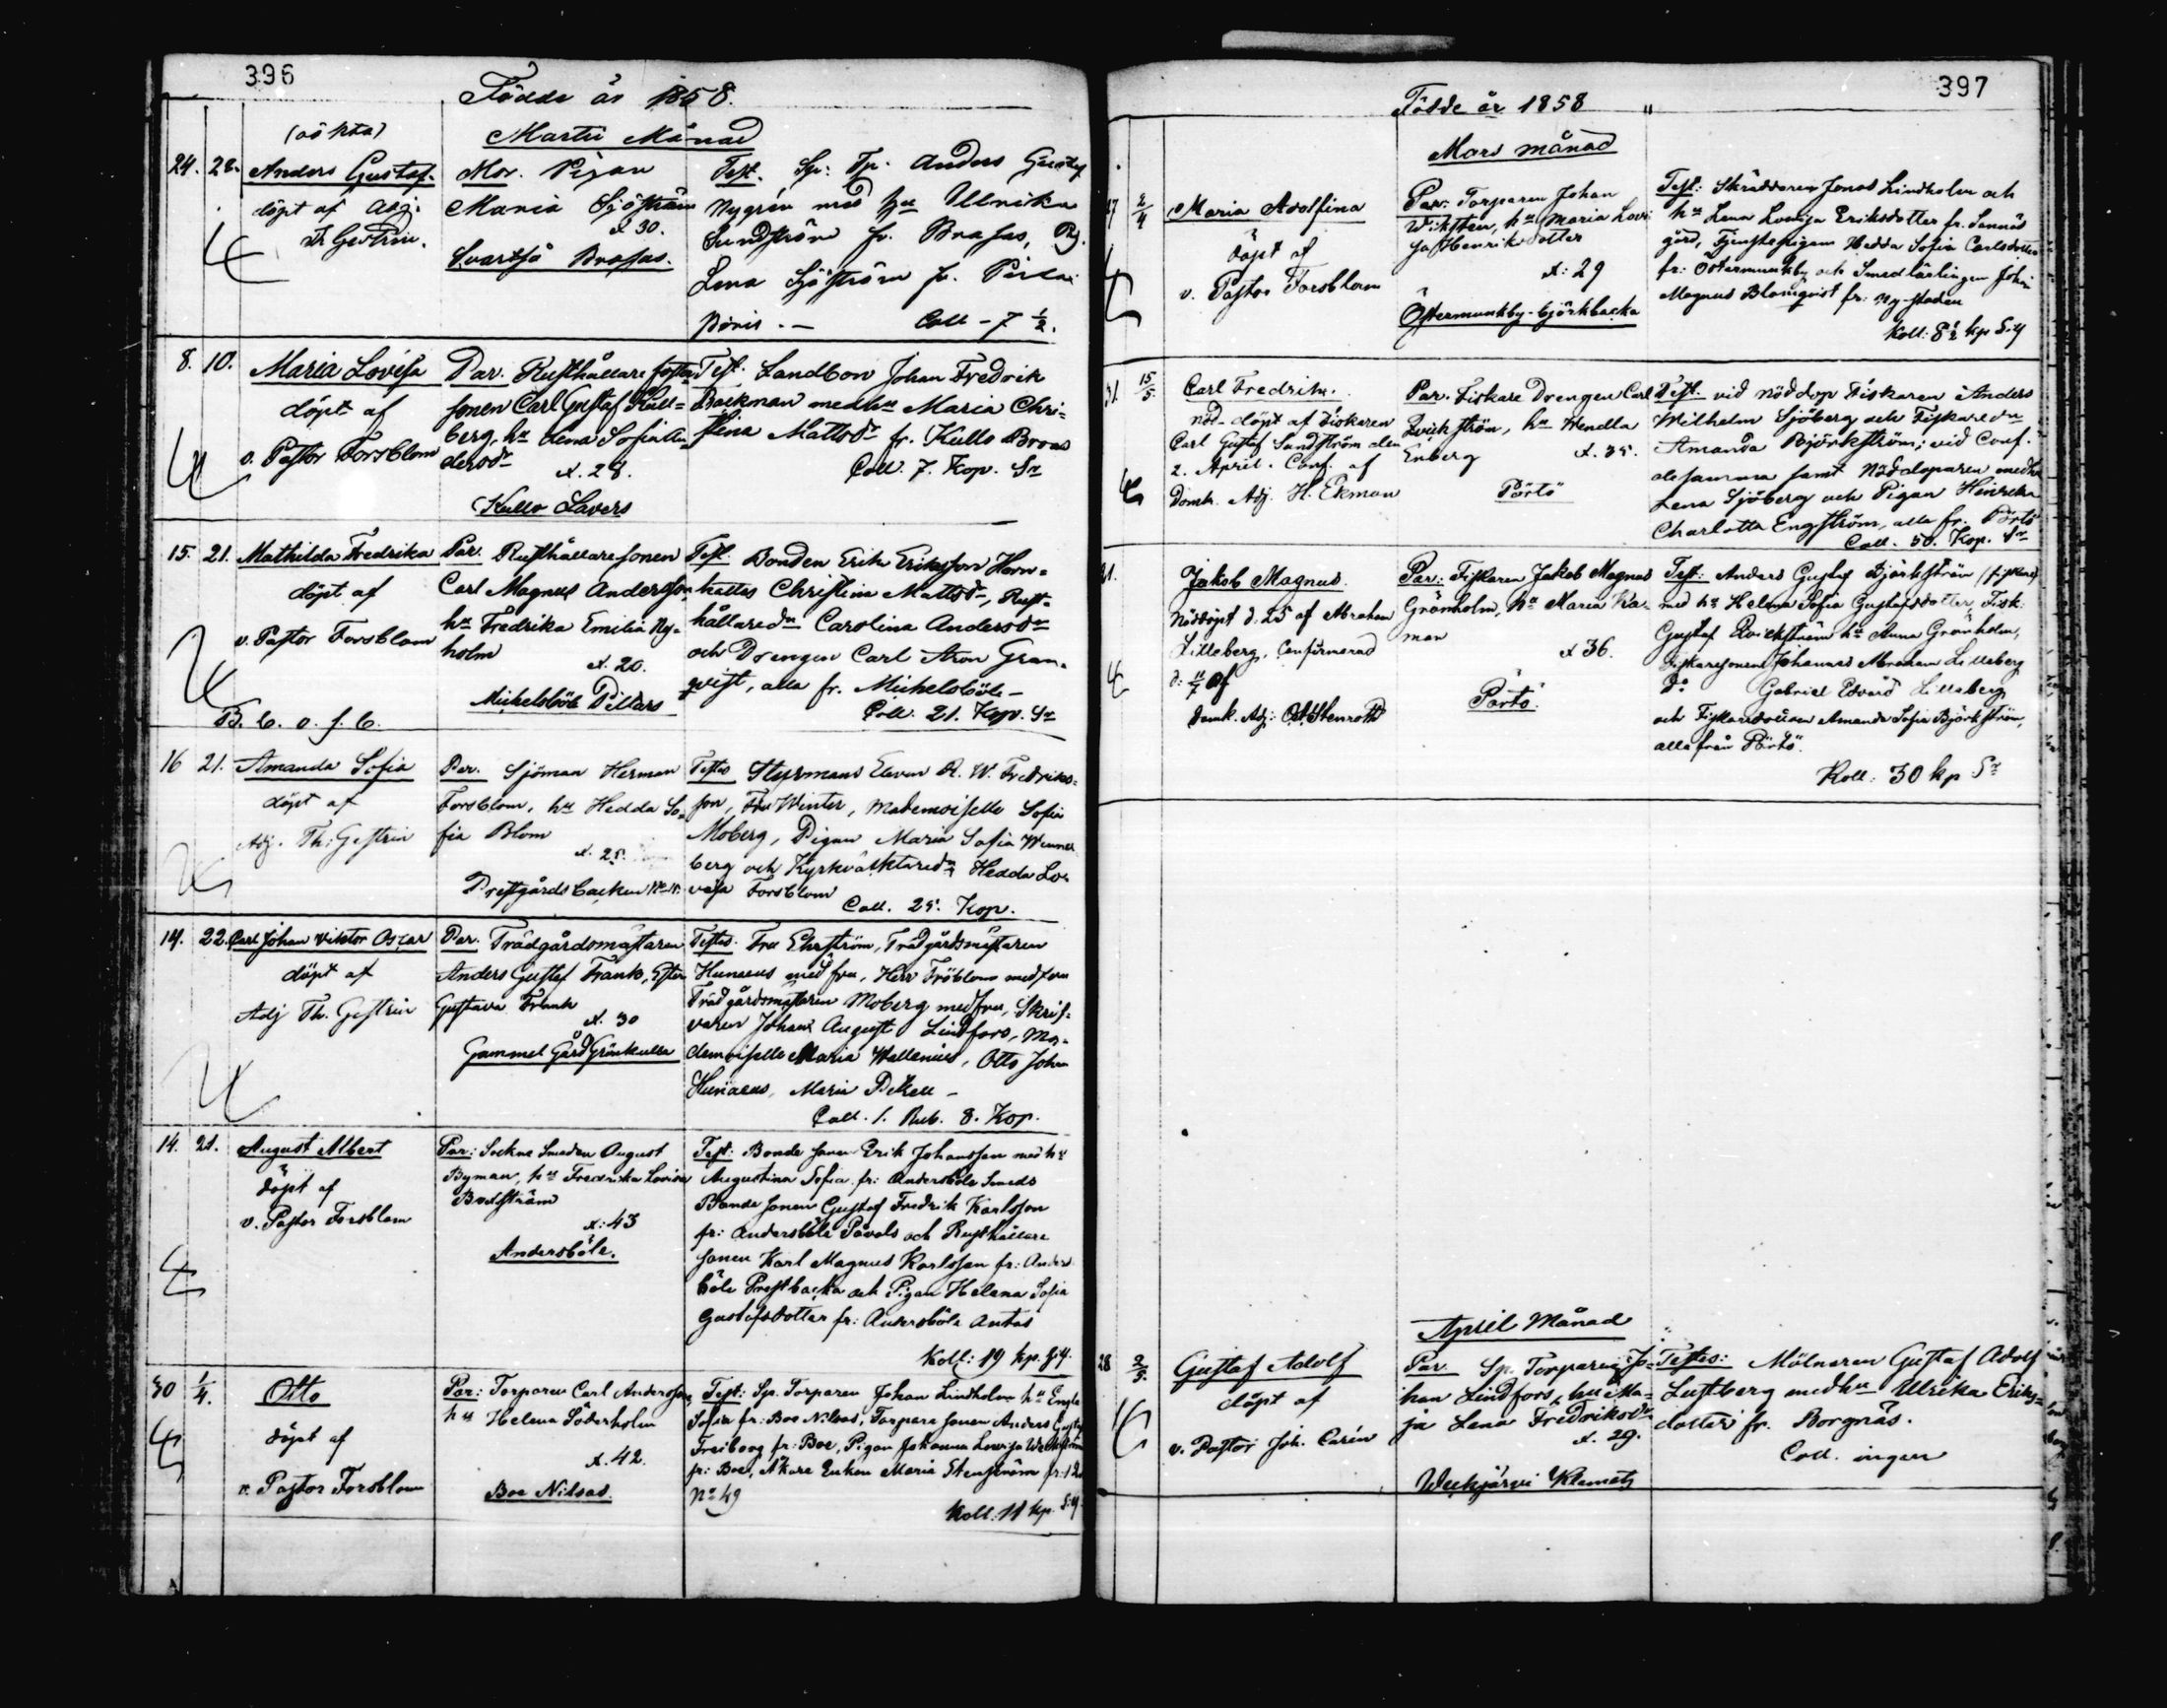 396
Födde år 1858.
Martii Månad
(oäkta)
24. 28. Anders Gustaf.
döpt af Adj:
Th Gestrin.
Mor. Pigan
Maria Sjöström
x 30.
Svartså Brasas.
Test. Sp: Tp. Anders Gustaf
Nygrén med hu Ullrika
Sundström fr. Brasas, Pig.
Lena Sjöström fr.
Coll - 7 1/2.
8. 10. Maria Lovisa
döpt af
v. Pastor Forsblom
Par. Rusthållare foster
sonen Carl Gustaf Kull=
berg, hu Lena Sofia An
dersdr
x. 28.
Kullo Lavers
Test. Landbon Johan Fredrik
Backman med hu Maria Chri=
stina Mattsdr fr. Kullo Broas
Coll. 7. Kop. Sr
15. 21. Mathilda Fredrika
döpt af
v. Pastor Forsblom
Par. Rusthållaresonen
Carl Magnus Andersson,
hu Fredrika Emilia Ny=
holm
x. 20.
Michelsböle Pillars
Test. Bonden Erik Eriksson
Christina Mattsdr, Rust=
hållaredn Carolina Andersdr
och Drengen Carl Aron Gran=
qvist, alla fr. Michelsböle -
Coll. 21. Kop. Sr
16 21. Amanda Sofia
döpt af
Adj. Th: Gestrin
Par. Sjöman Herman
Forsblom, hu Hedda So=
fia Blom
x. 25.
Prestgårdsbacken
Testes Styrmans Eleven A. W. Fredriks=
son, Fru Winter, Mademoiselle Sofia
Moberg, Pigan Maria Sofia Wenner
berg och Kyrkväktaredn Hedda Lo=
visa Forsblom
Coll. 25. Kop.
14. 22. Carl Johan Viktor Oscar
döpt af
Adj Th. Gestrin
Par. Trädgårdsmästaren
Anders Gustaf Frank, Ester
Gustava Frank
x. 30
Gammel Gård Grönkulla
Testes. Fru Ehrström, Trädgårdsmästaren
Hunaeus med fru, Herr Fröblom med fru
Trädgårdsmästaren Moberg med fru, Skrif=
varen Johan August Lindfors, Ma=
demoiselle Maria Wallenius, Otto Johan
Hunaeus, Maria
Coll. 1. Rub. 8. Kop.
14. 21. August Albert
döpt af
v. Pastor Forsblom
Par: Sockne Smeden August
Byman, hu Fredrika Lovisa
Bodström
x: 43
Andersböle.
Test: Bonde sonen Erik Johansson med hu
Augustina Sofia fr: Andersböle Smeds
Bonde sonen Gustaf Fredrik Karlsson
fr: Andersböle Påvals och Rusthållare
sonen Karl Magnus Karlsson fr: Anders
böle Prestbacka och Pigan Helena Sofia
Gustafsdotter fr: Andersböle Antas
Koll: 19 kp. S:r
30 1/4. Otto
döpt af
v. Pastor Forsblom
Par: Torparen Carl Andersson,
hu Helena Söderholm
x. 42.
Boe Nilsas.
Test: Sp. Torparen Johan Lindholm hu Engla
Sofia fr: Boe Nilsas, Torpare sonen Anders Gustaf
Freiborg fr: Boe, Pigan Johanna Lovisa
fr: Boe, Åkare Enkan Maria Stenström fr:
No 49
Koll: 11 kp. S:r
397
Födde år 1858
Mars månad
27 2/4 Maria Adolfina
döpt af
v. Pastor Forsblom
Par: Torparen Johan
Wiksten, hu Maria Lovi
sa Henriksdotter
x: 29
Östermunkby-björkbacka
Test: Skräddaren Jonas Lindholm och
hu Lena Lovisa Eriksdotter fr. Sannäs
gård, Tjenstepigan Hedda Sofia Carlsdotter
fr: Östermunkby och Smedlärlingen Johan
Magnus Blomqvist fr: Ny-staden
Koll: 8 1/2 kp S:r
31. 15/5. Carl Fredrik.
nöd-döpt af Fiskaren
Carl Gustaf Sundström den
2. April. Conf. af
Domk. Adj. H. Ekman
Par. Fiskare Drengen Carl
Qvickström, hu Wendla
Enberg
x. 35.
Pörtö
Test. vid nöddop Fiskaren Anders
Wilhelm Sjöberg och Fiskaredn
Amanda Björkström; vid Conf.
desamma samt Nöddoparen med hu
Lena Sjöberg och Pigan Hinrika
Charlotta Engström, alla fr. Pörtö
Coll. 50. Kop. Sr
31. Jakob Magnus.
Nöddöpt d. 25 af Abraham
Lilleberg, Confirmerad
d: 11/7 af
Domk. Adj: Stenroth
Par: Fiskaren Jakob Magnus
Grönholm, hu Maria Ka=
man
x 36.
Pörtö.
Test: Anders Gustaf Björkström (fiskare)
med hu Helena Sofia Gustafsdotter, Fisk:
Gustaf Qvickström hu Anna Grönholm,
Fiskaresonen Johannes Abraham Lilleberg
do Gabriel Edvard Lilleberg
och Fiskaredottren Amanda Sofia Björkström,
alla från Pörtö.
Koll: 30 kp Sr
April Månad
28 2/5. Gustaf Adolf
döpt af
v. Pastor Joh. Carén
Par. Sp. Torparen Jo=
han Lindfors, hu Ma=
ja Lena Fredriksdr
x. 29.
Wekjärvi Klemets
Testes: Mölnaren Gustaf Adolf
Lustberg med hu Ulrika Eriks=
dotter fr. Borgnäs.
Coll. ingen